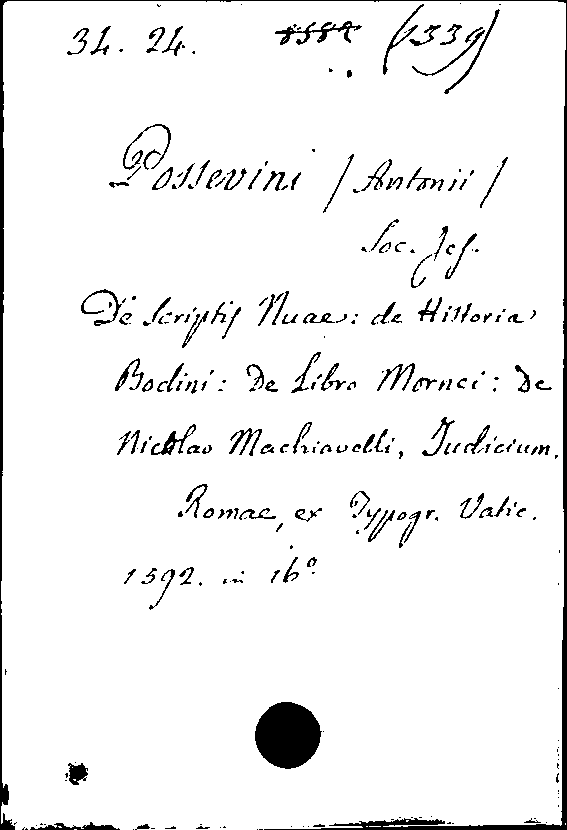 34. 24. 8584 (1339)
Possevini / Antonii /
Soc. Jes.
De Scriptis Nuae: de Historia
Bodini: De Libro Mornei: De
Nicolao Machiavelli, Judicium.
Romae, ex Typogr. Vatic.
1592. in 16º